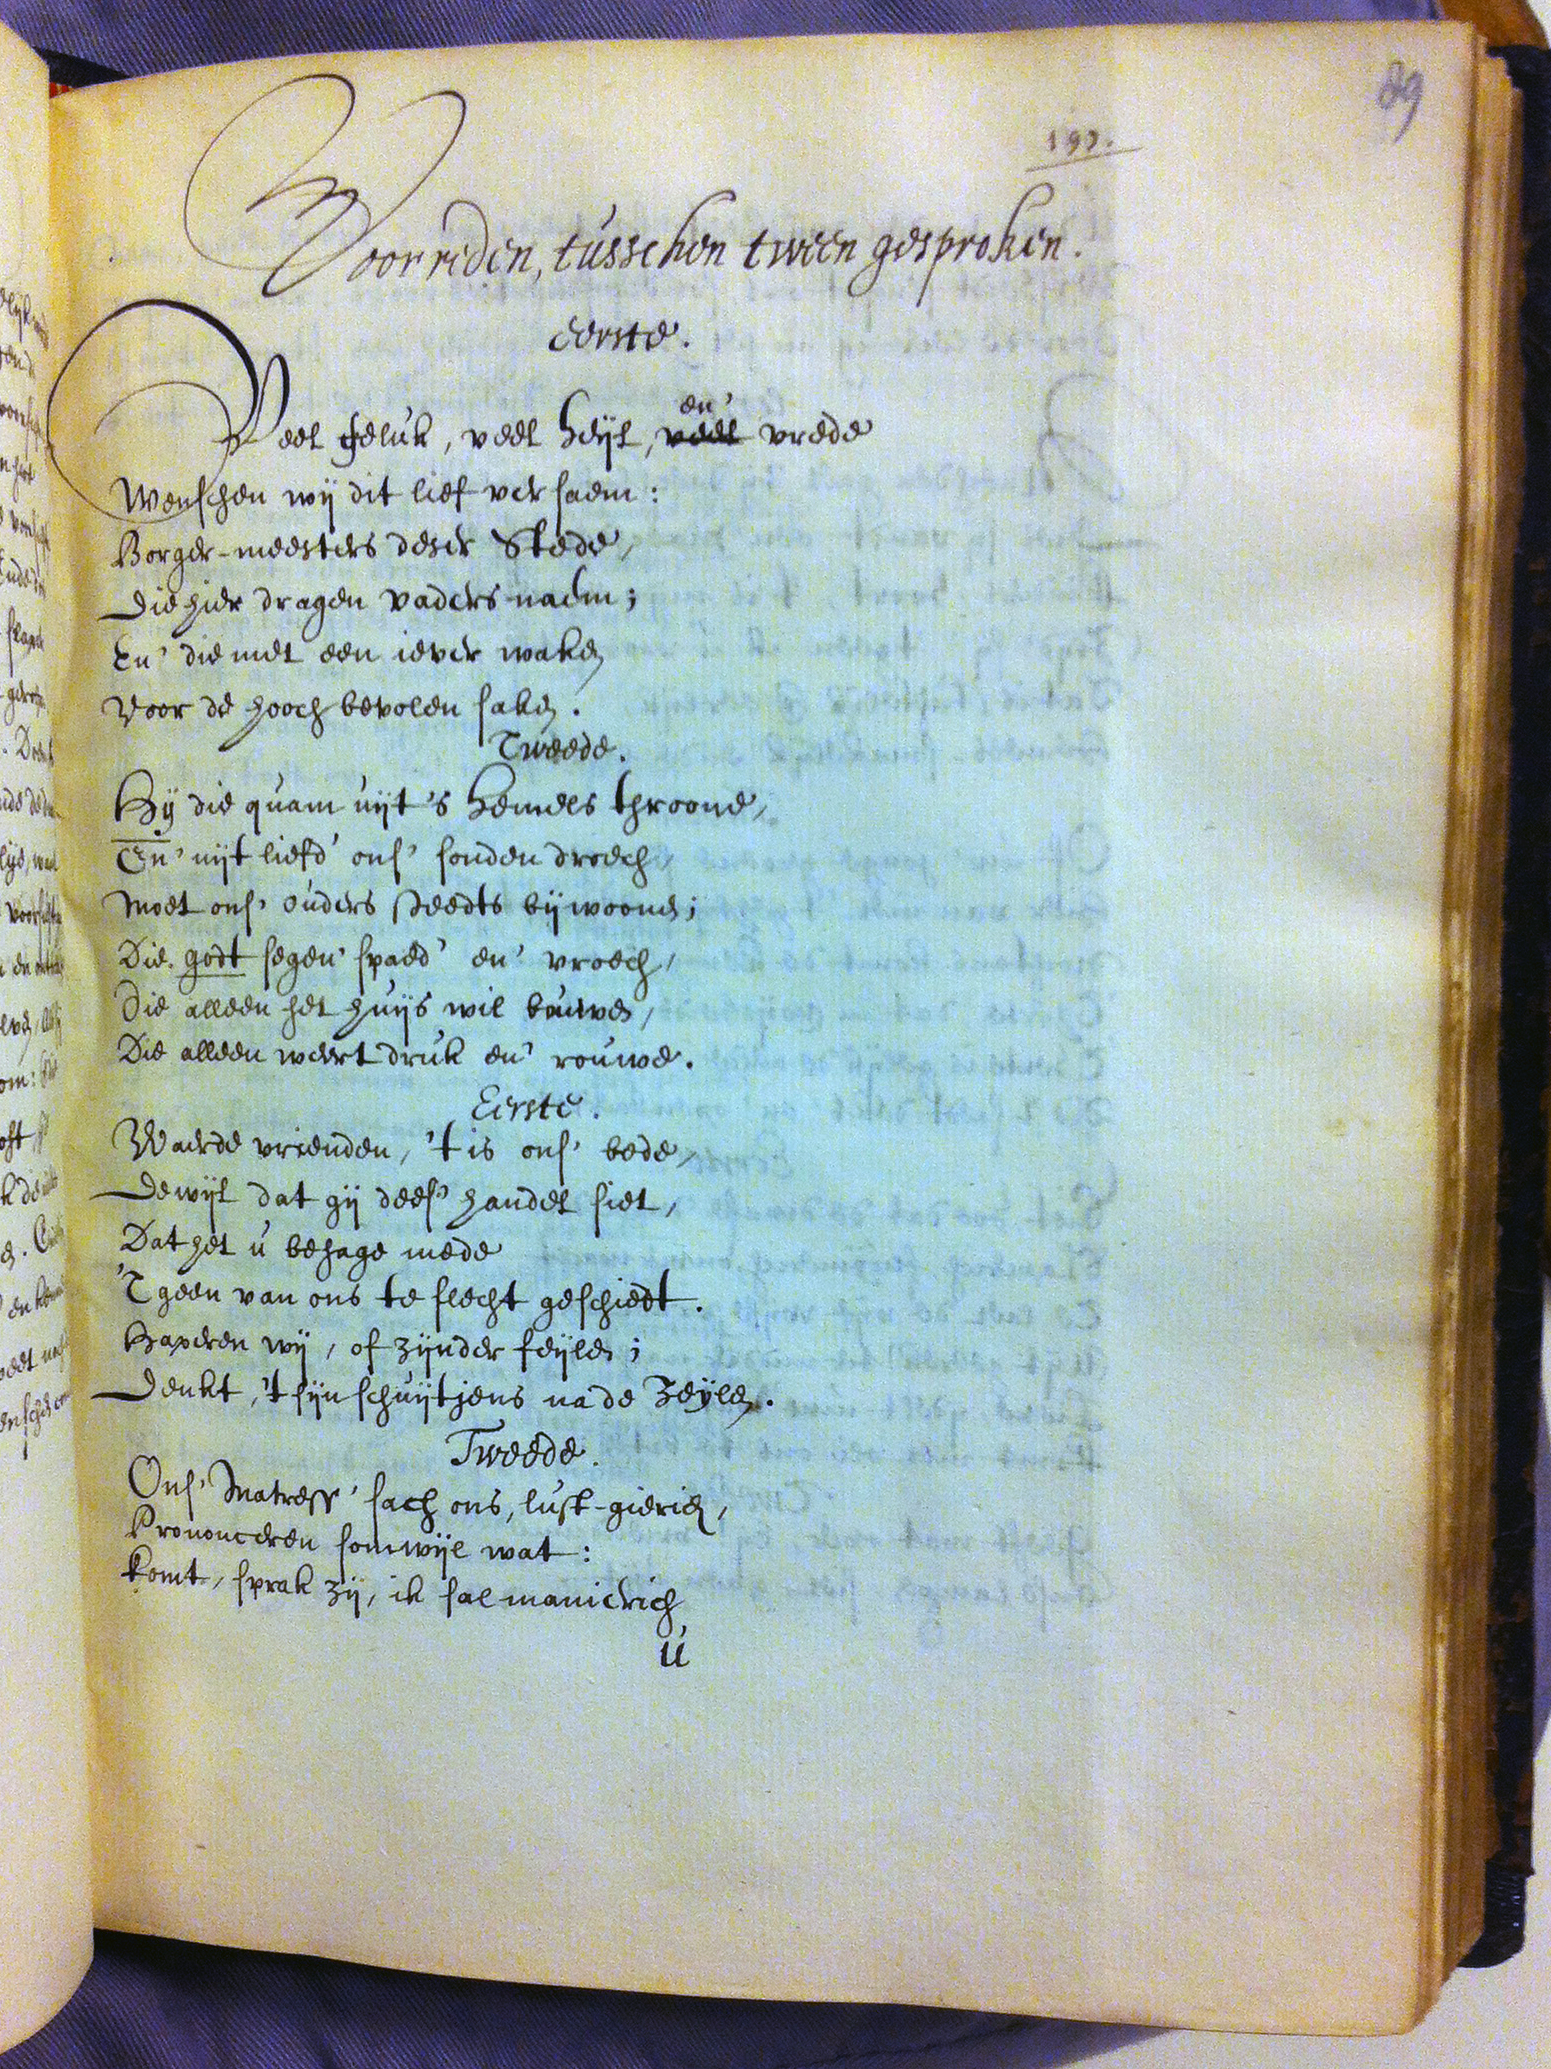 89
197.
Voorreden, tusschen tween gesproken.
Eerste.
en'
Veel geluk, veel heÿl, veel vrede
Wenschen wÿ dit lief versaem:
Borger-meesters deser Stede,
Die hier dragen vaders-naem;
En' die met een iever waken
Voor de hooch bevolen saken.
Tweede.
Hÿ die quam uÿt 's hemels throone,
En' uÿt liefd' ons' sonden droech,
Moet ons' ouders steedts bÿwoonen;
Die godt segen' spaed' en' vroech,
Die alleen het huÿs wil bouwen,
Die alleen weert druk en' rouwe.
Eerste.
Waerde vrienden, 't is ons' bede,
Dewÿl dat gÿ dees' handel siet,
Dat het u behage mede
'T geen van ons te slecht geschiedt.
Haperen wÿ, of zÿnder feÿlen;
Denkt, 't sÿn schuÿtjens na de Zeÿlen.
Tweede.
Ons' Matress' sach ons, lust-gierich,
Prononceren somwÿl wat:
Komt, sprak zÿ, ik sal manierich
U